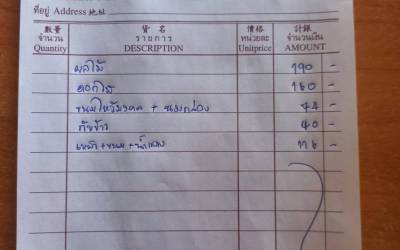 ที่อยู่ Address 地址
數量 貨名 價格 計銀
จำนวน รายการ หน่วยละ จำนวนเงิน
Quantity DESCRIPTION Unitprice AMOUNT
ผลไม้ 190 -
ดอกไม้ 160 -
ขนมไหว้มงคล + ขนมกล่อง 74 -
กับข้าว 40 -
เหล้า+ขนม+น้ำแดง 116 -